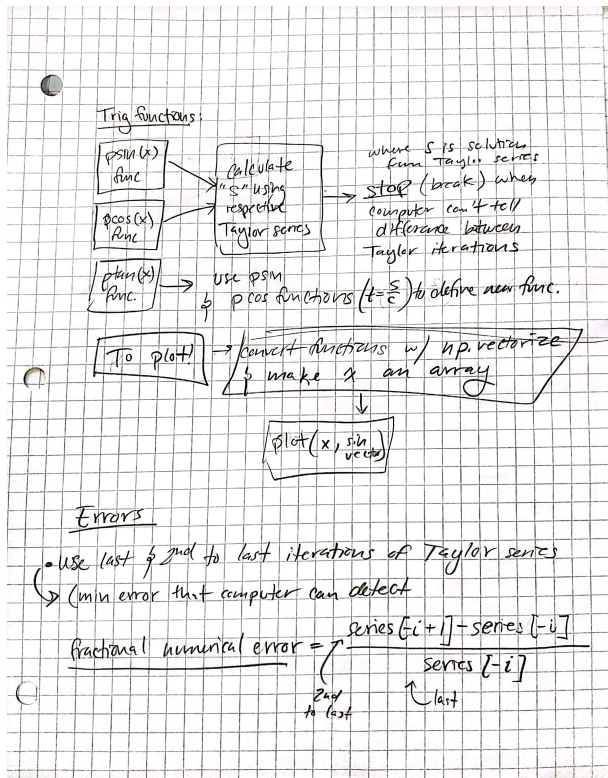 Trig functions:
psin(x)
func
pcos(x)
func
ptan(x)
func.
calculate
"S" using
respective
Taylor series
where S is solution
from Taylor series
stop (break) when
computer can't tell
difference between
Taylor iterations
use psin
& pcos functions (t = s/c) to define new func.
To plot!
convert functions w/ np.vectorize
& make x an array
plot(x, sin vector)
Errors
• use last & 2nd to last iterations of Taylor series
(min error that computer can detect
fractional numerical error = series[-i+1] - series[-i]
series[-i]
2nd
to last
last